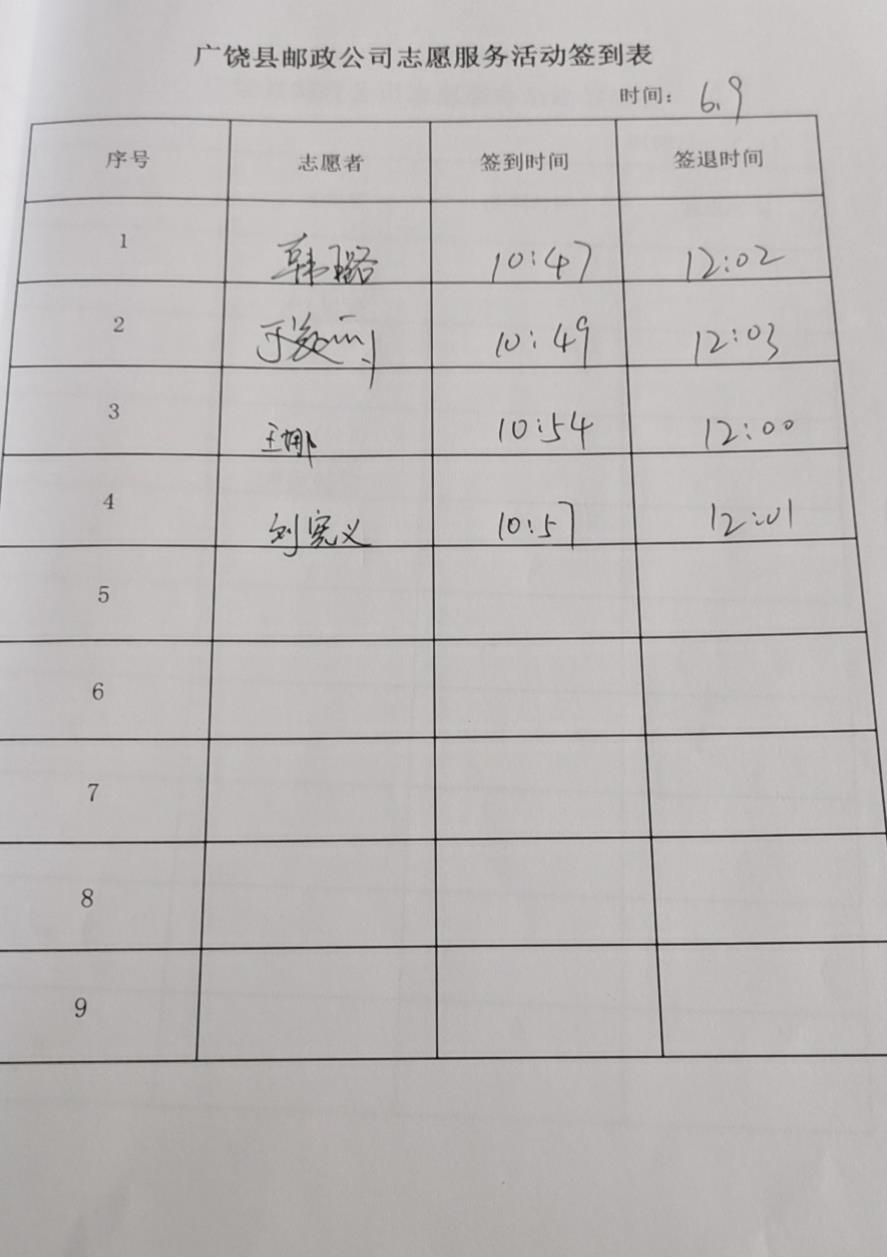 广饶县邮政公司志愿服务活动签到表
时间: 6.9
序号 志愿者 签到时间 签退时间
1 韩璐 10:47 12:02
2 10:49 12:03
3 王娜 10:54 12:00
4 刘宪义 10:57 12:01
5
6
7
8
9